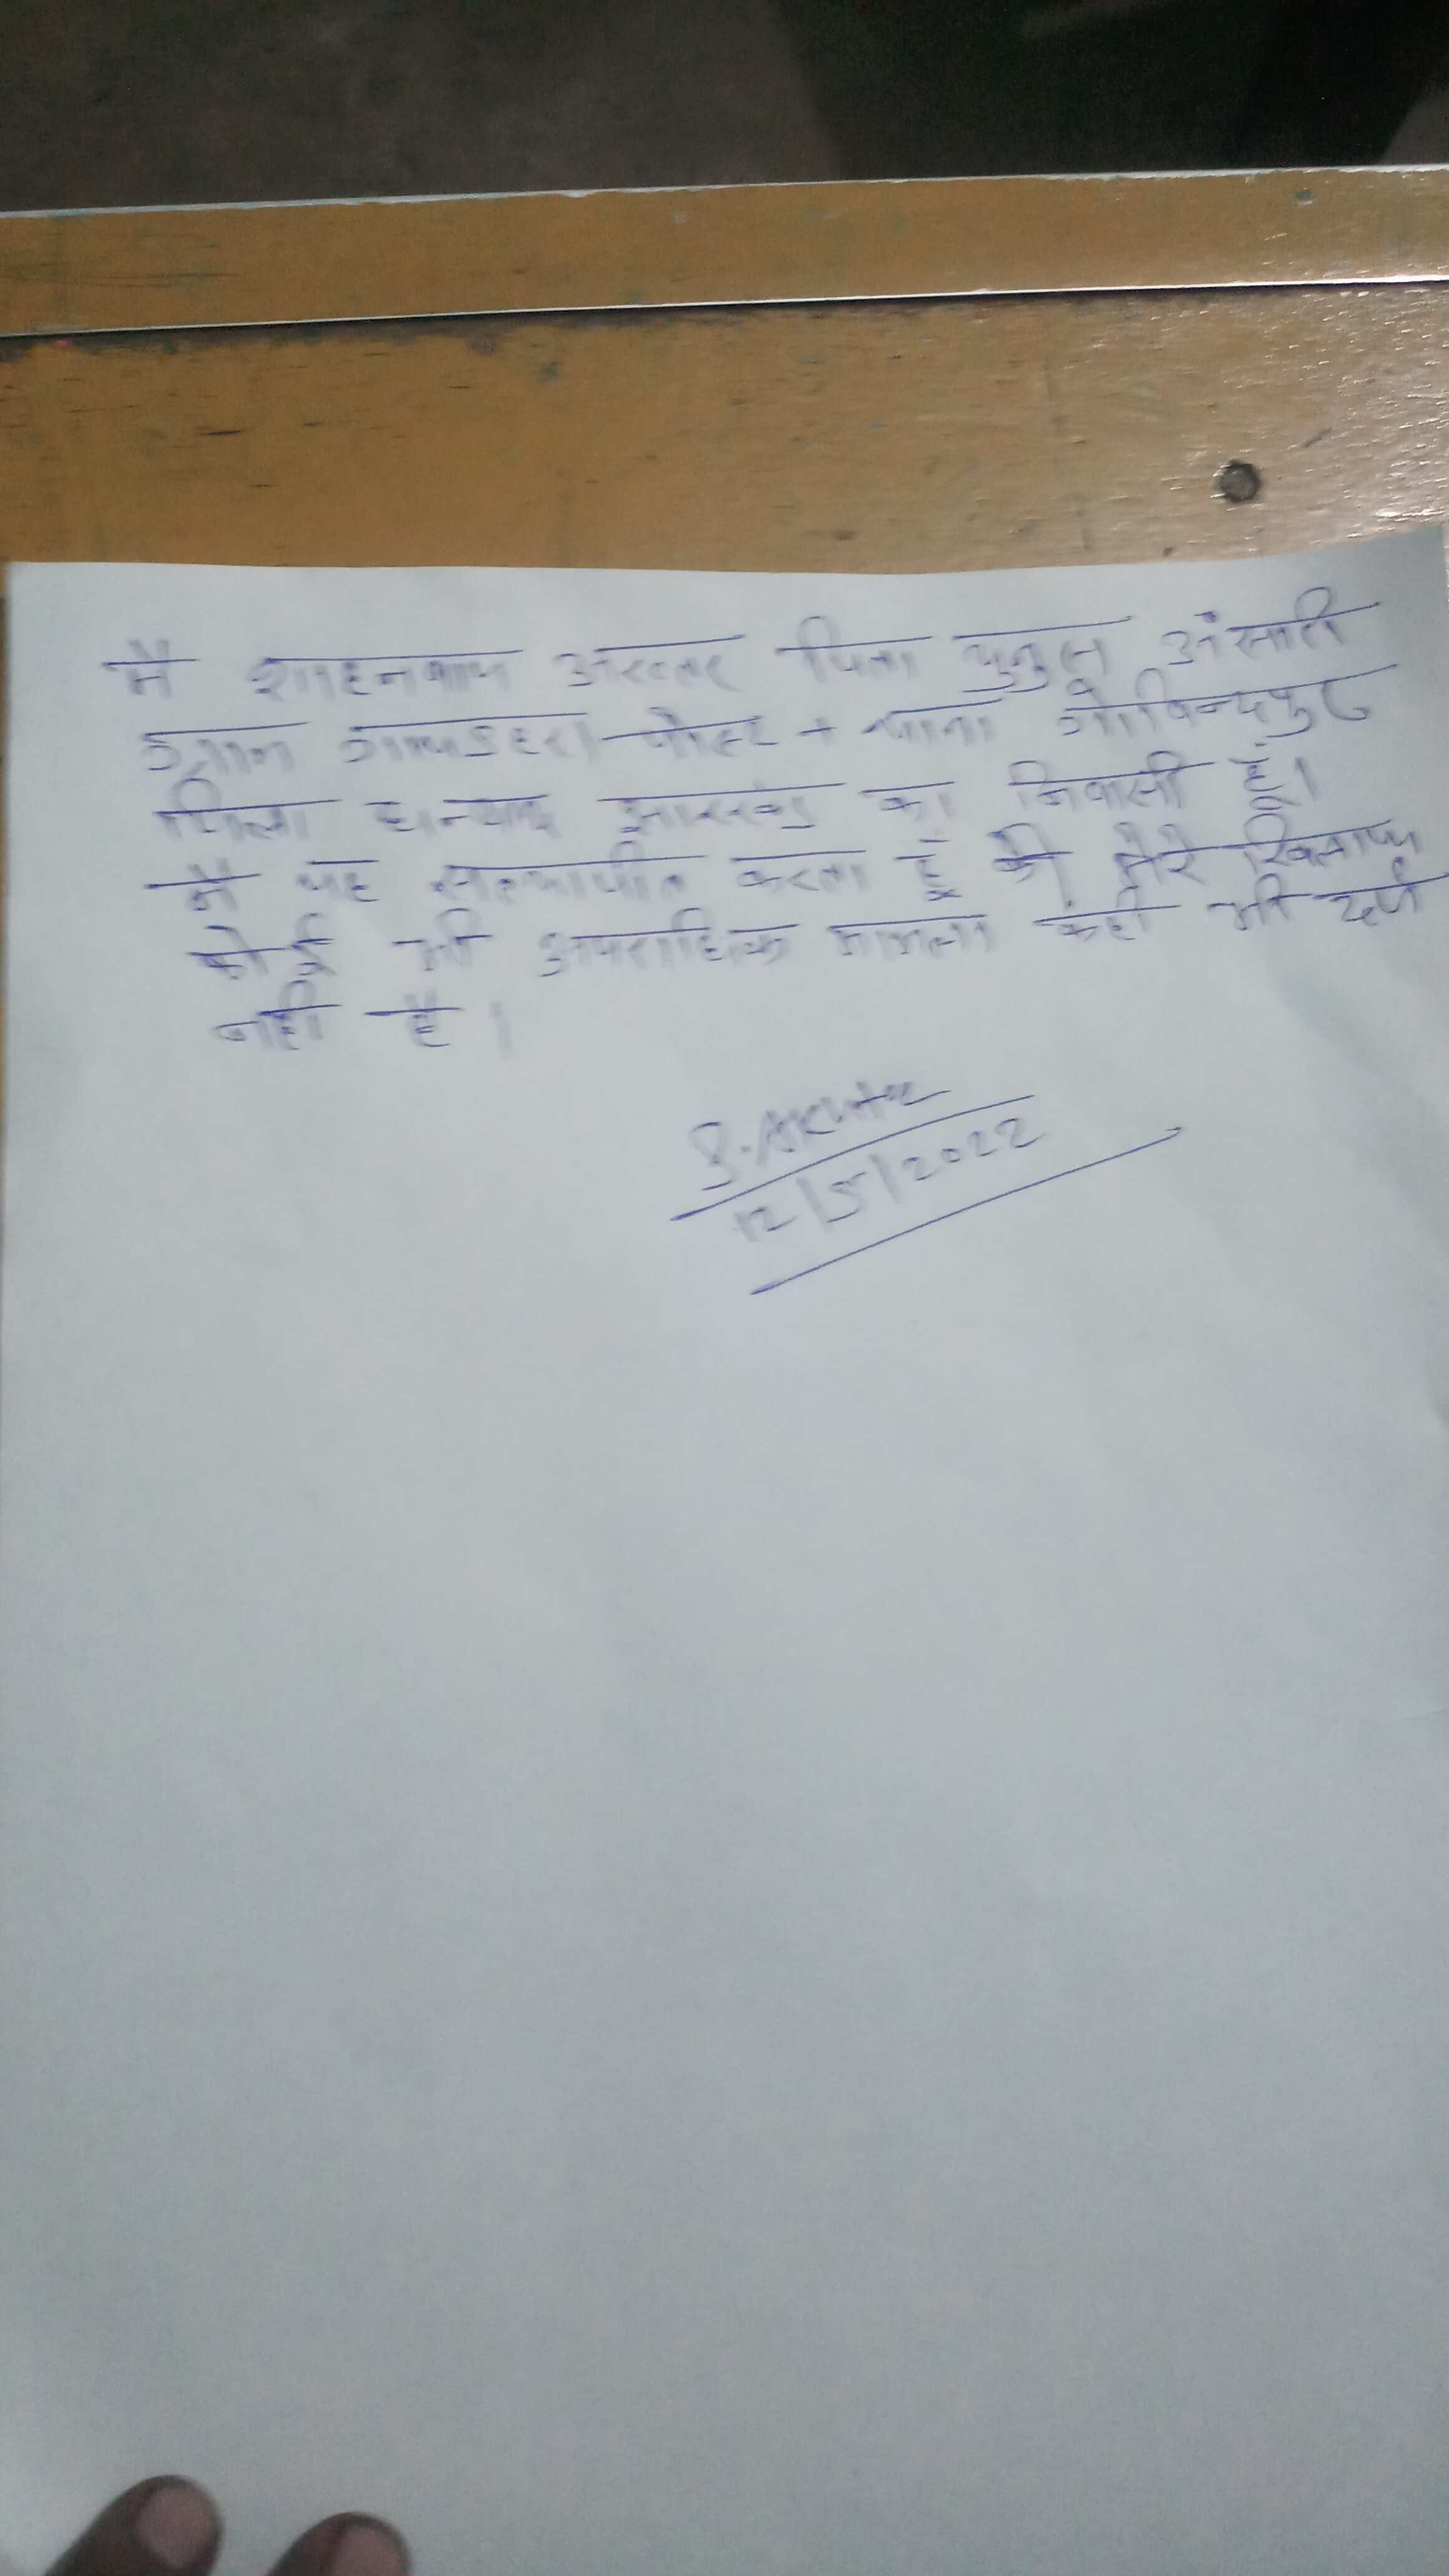 मै शाहनवाज अख्तर पिता युनुस अंसारि
ग्राम गायडहरा पोस्ट + थाना गोविन्दपुर
जिला धनबाद झारखंड का निवासी हूँ।
मै यह सत्यापीत करता हूँ की मेरे खिलाफ
कोई भी अपराधिक मामला कंही भी दर्ज
नही है।
S. Akhtar
12/5/2022